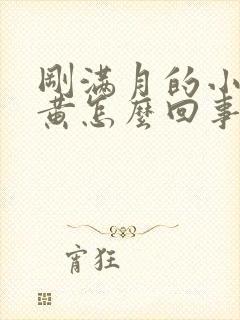 剛滿月的小
黃怎麼回事
宵狂